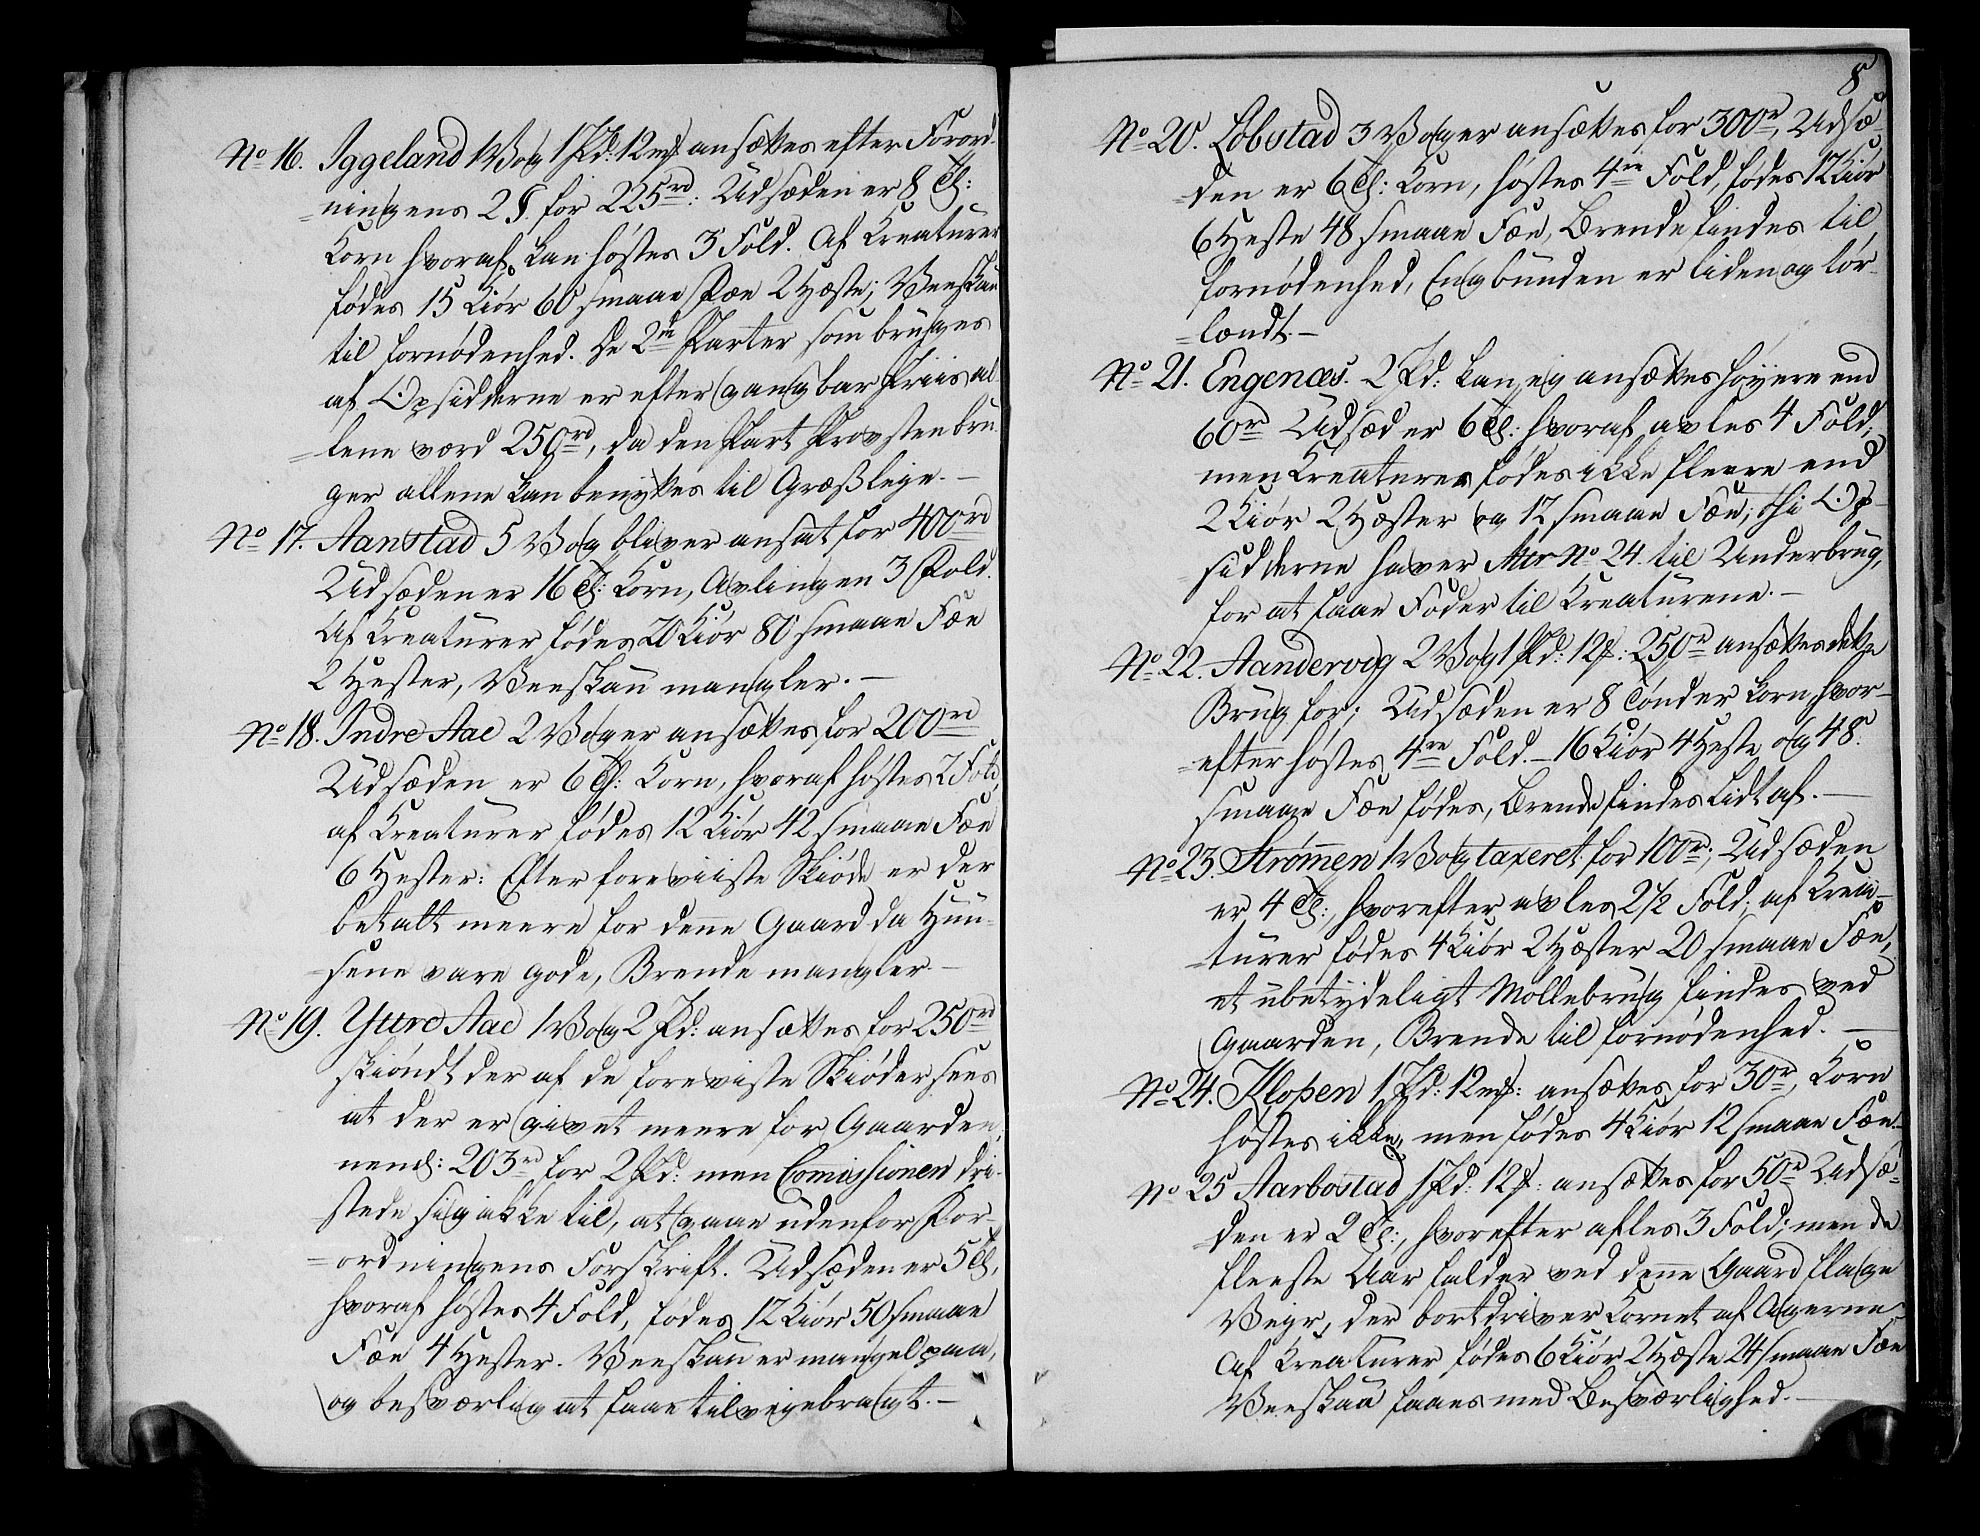 No 16. Iggeland 1 Vog 1 Pd: 12 mk ansættes efter Forord-
ningens 2 §. for 225rd: Udsæden er 8 Td:
Korn hvoraf kan høstes 3 Fold. Af Kreaturer
fødes 15 Kiør 60 smaae Fæe 2 Hæste; Veeskau
til fornødenhed. De 2de Parter som bruges
af Opsidderne er efter gangbar Priis al-
lene værd 250rd, da den Part Provsten bru-
ger allene kan benyttes til Græsleye.—
No 17. Aanstad 5 Vog bliver ansat for 400rd
Udsæden er 16 Td: Korn, Avlingen 3 Fold.
Af Kreaturer fødes 20 Kiør 80 smaae Fæe
2 Hester, Veeskau mangler.—
No 18. Indre Aae 2 Voger ansættes for 200rd
Udsæden er 6 Td: Korn, hvoraf høstes 2 Fold,
af Kreaturer fødes 12 Kiør 42 smaae Fæe
6 Hester: Efter foreviiste Skiøde er der
betalt meere for denne Gaard da Huu-
sene vare gode, Brende mangler.—
No 19. Yttre Aae 1 Vog 2 Pd: ansættes for 250rd
skiøndt der af de foreviste Skiøder sees
at der er givet meere for Gaarden,
neml: 203rd for 2 Pd: men Comissionen dri-
stede sig ikke til, at gaae udenfor For-
ordningens Forskrift. Udsæden er 5 Td,
hvoraf høstes 4 Fold, fødes 12 Kiør 50 smaae
Fæe 4 Hester. Veeskau er mangel paa,
og besværlig at faae tilveyebragt.—
8
No 20. Lobstad 3 Voger ansættes for 300rd, Udsæ-
den er 6 Td: Korn, høstes 4re Fold, fødes 12 Kiør
6 Heste 48 smaae Fæe, Brende findes til
fornødenhed, Engbunden er liden og tør-
lændt.—
No 21. Engenæs. 2 Pd: kan ey ansættes høyere end
60rd Udsæd er 6 Td: hvoraf avles 4 Fold,
men Kreaturer fødes ikke fleere end
2 Kiør 2 Hæster og 12 smaae Fæe; thi Op-
sidderne haver Mtr No 24. til Underbrug,
for at faae Foder til Kreaturene.—
No 22. Aandervog 2 Vog 1 Pd: 12: 250rd ansættes dette
Brug for; Udsæden er 8 Tønder Korn, hvor-
efter høstes 4re Fold.— 16 Kiør 4 Heste og 48
smaae Fæe fødes, Brende findes Lidt af.—
No 23. Strømen 1 Vog taxeret for 100rd; Udsæden
er 4 Td:, hvorefter avles 2 1/2 Fold; af Krea-
turer fødes 4 Kiør 2 Hæster 20 smaae Fæe,
et ubetydeligt Møllebrug findes ved
Gaarden, Brende til fornødenhed.—
No 24. Klosen 1 Pd: 12 mk: ansættes for 30rd, Korn
høstes ikke, men fødes 4 Kiør 12 smaae Fæe.
No 25 Aarbostad 1 Pd: 12: ansættes for 50rd Udsæ-
den er 2 Td:, hvorefter afles 3 Fold; men de
fleeste Aar falder ved denne Gaard flage
Veyr, der bortdriver Kornet af Agerne
Af Kreaturer fødes 6 Kiør 2 Hæste 24 smaae Fæe
Veeskau faaes med Besværlighed.—